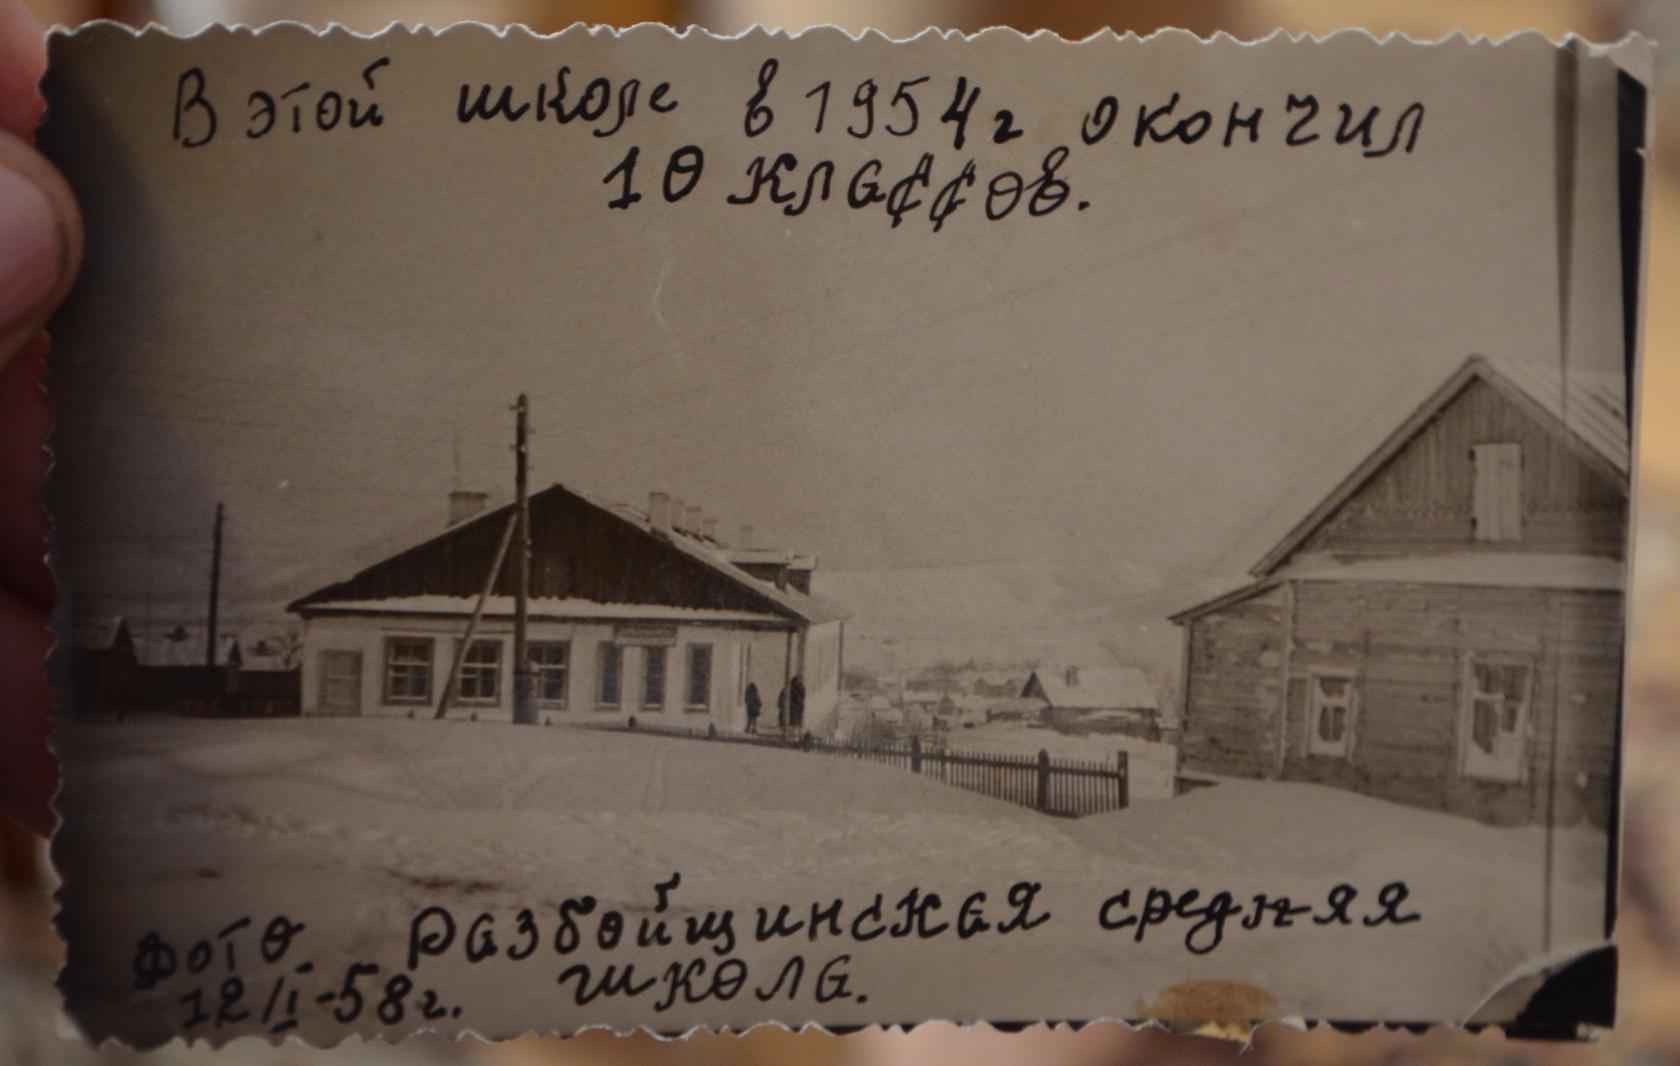 В этой школе в 1954г окончил
10 классов.
Фото Разбойщинская средняя
12/I-58г. школа.